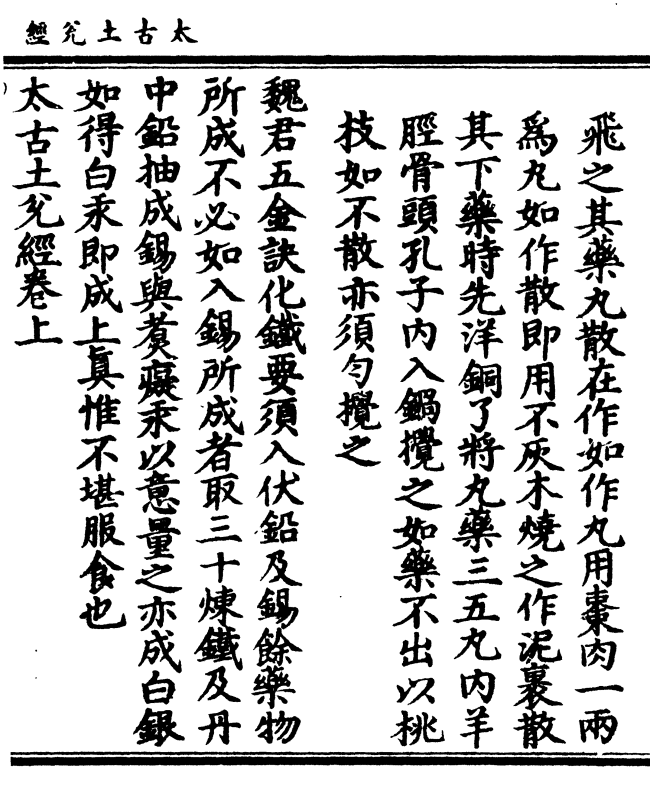 太古土兊經
飛之其藥丸散在作如作丸用棗肉一兩
爲丸如作散即用不灰木燒之作泥裹散
其下藥時先洋銅了將丸藥三五丸內羊
脛骨頭孔子內入鍋攪之如藥不出以桃
枝如不散亦須勻攪之
魏君五金訣化鐵要須入伏鉛及錫餘藥物
所成不必如入錫所成者取三十煉鐵及丹
中鉛抽成錫與煑凝汞以意量之亦成白銀
如得白汞即成上眞惟不堪服食也
太古土兊經卷上